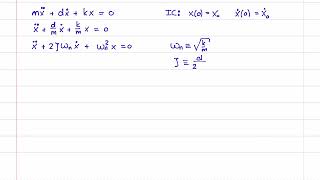 mẍ + dẋ + kx = 0    IC: x(0) = x₀    ẋ(0) = ẋ₀
ẍ + d/m ẋ + k/m x = 0
ẍ + 2ζωₙẋ + ωₙ²x = 0    ωₙ = √(k/m)
ζ = d/2